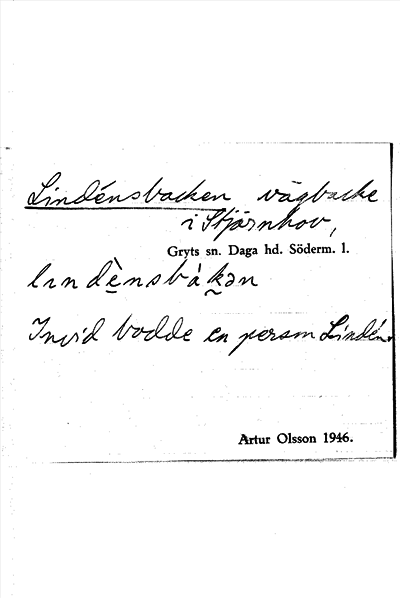 Lindénsbacken vägbacke
i Stjärnhov,
Gryts sn. Daga hd. Söderm. l.
lındènsbàkən
Invid bodde en person Lindén.
Artur Olsson 1946.